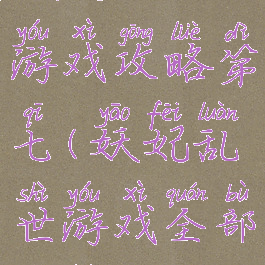 yóu xì gōng lüè dì
游戏攻略第
qī yāo fēi luàn
七(妖妃乱
shì yóu xì quán bù
世游戏全部